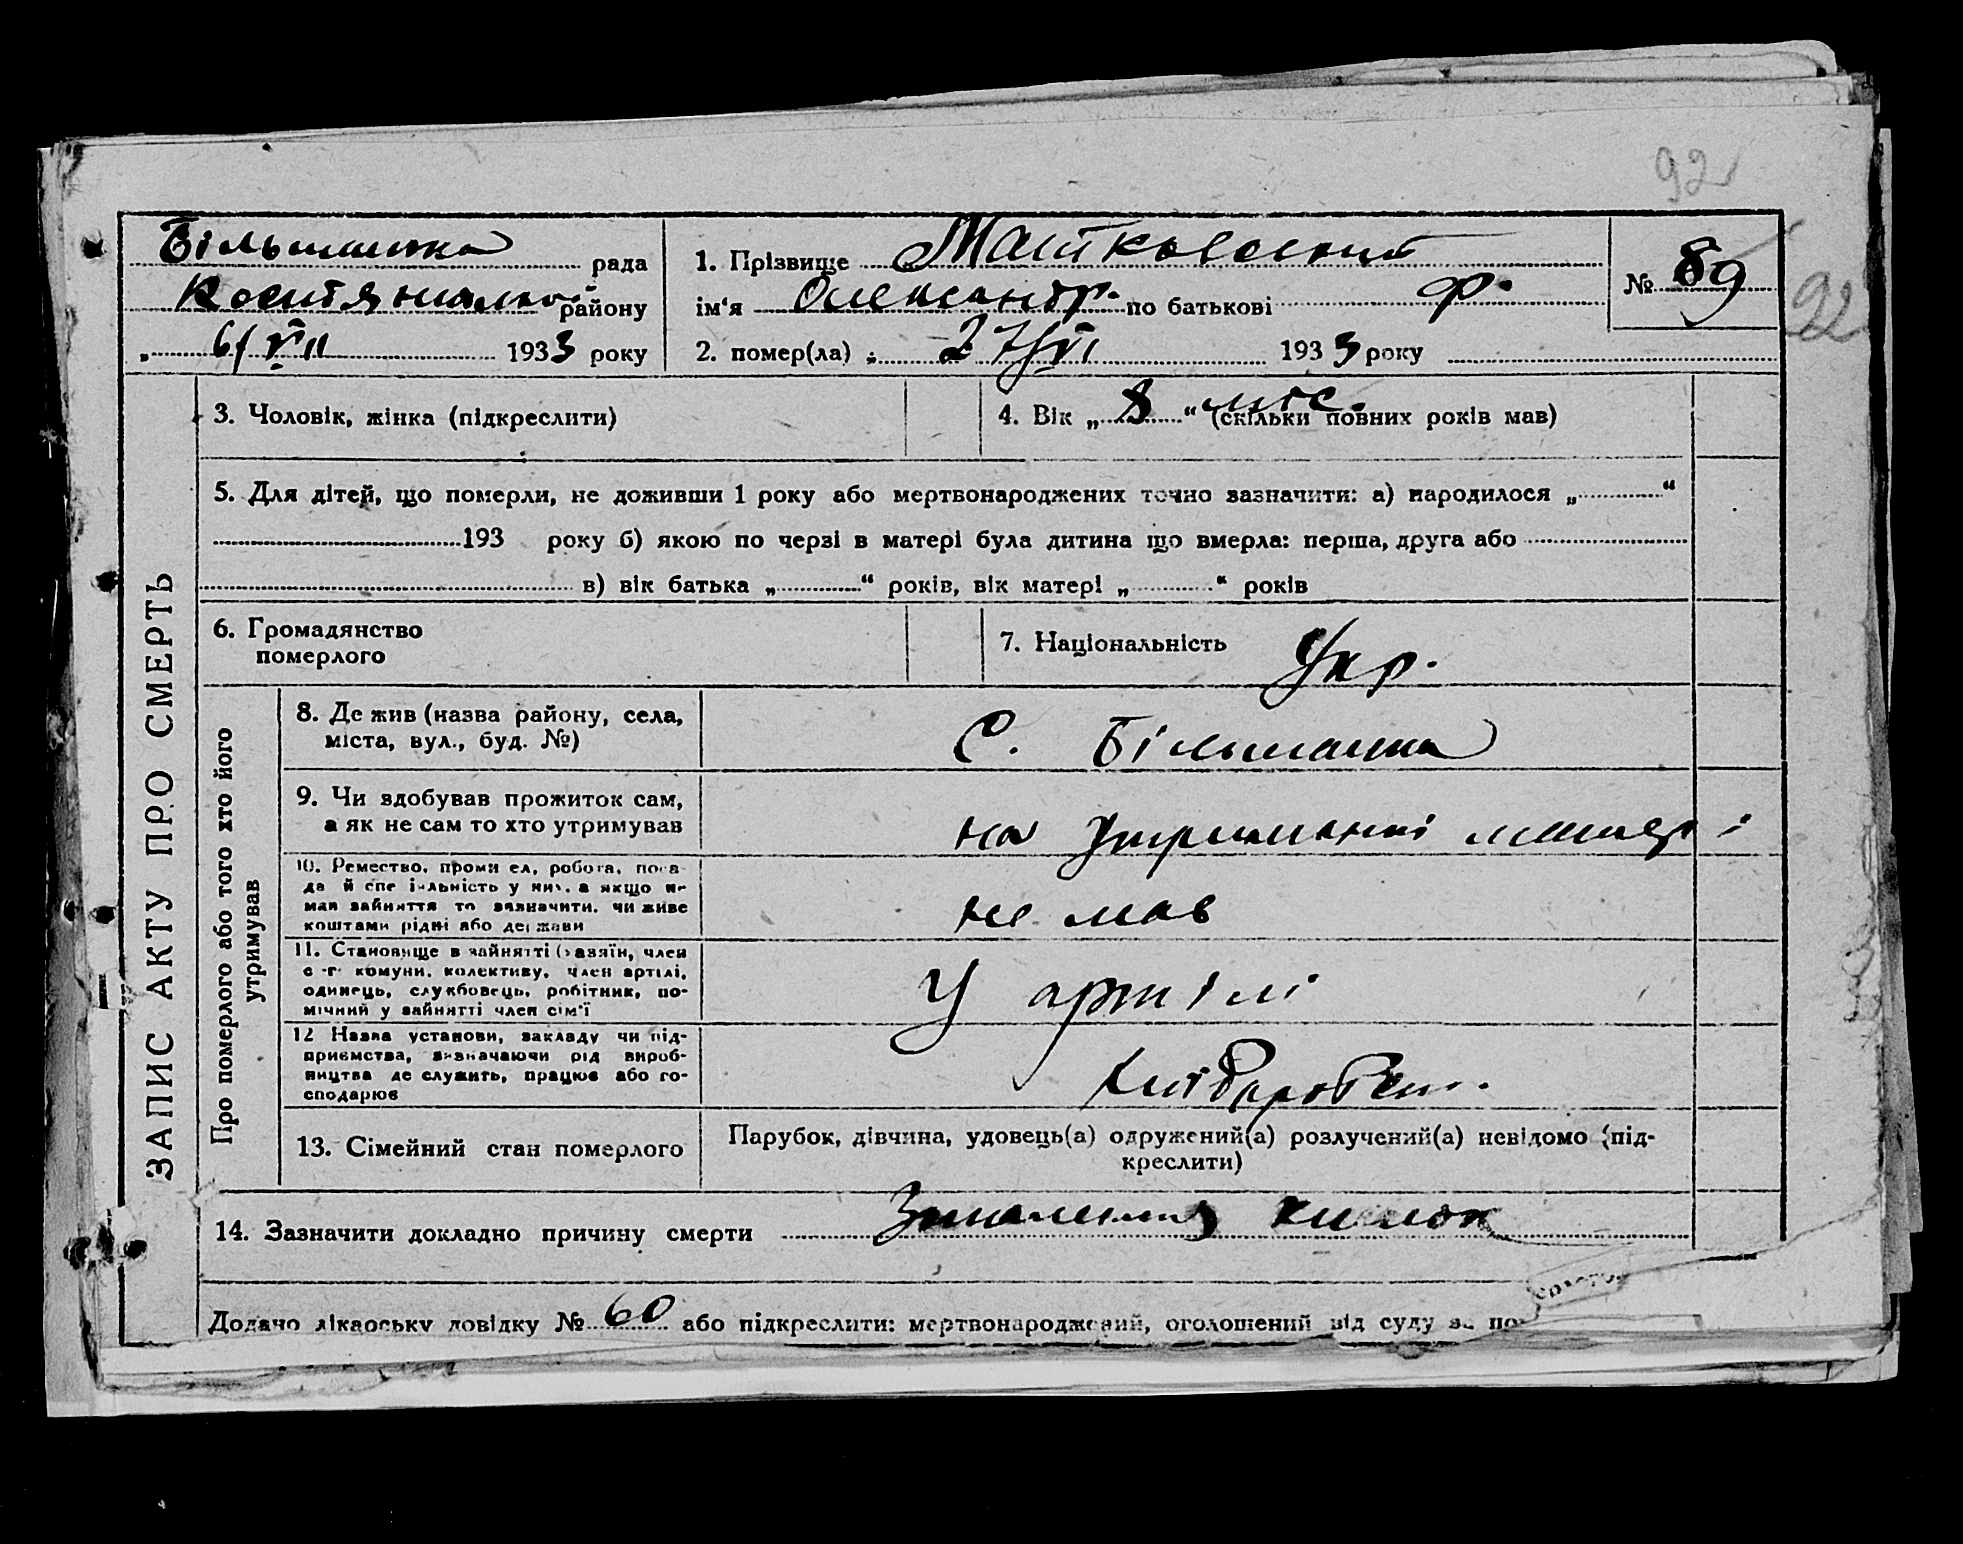 92
Більшанка рада
району
„ 6/VII 1933 року
1. Прізвище Матковський
ім‘я Олександр. по батькові Ф.
2. помер(ла) „ 27/VI 1933 року
№ 89
92
ЗАПИС АКТУ ПРО СМЕРТЬ
3. Чоловік, жінка (підкреслити)
4. Вік „ 8 “ міс. (скільки повних років мав)
5. Для дітей, що померли, не доживши 1 року або мертвонароджених точно зазначити: а) народилося „ “
193 року б) якою по черзі в матері була дитина що вмерла: перша, друга або
в) вік батька „ “ років, вік матері „ “ років
6. Громадянство
померлого
7. Національність Укр.
Про померлого або того хто його
утримував
8. Де жив (назва району, села,
міста, вул., буд. №)
С. Більшанка
9. Чи здобував прожиток сам,
а як не сам то хто утримував
на утриманні матері
10. Ремество, проми ел, робота, поса-
да й спе іяльність у них, а якщо не
мав зайняття то зазначити, чи живе
коштами рідні або держави
не мав
11. Становище в зайнятті (хазяїн, член
с-г комуни, колективу, член артілі,
одинець, службовець, робітник, по-
мічний у зайнятті член сім‘ї
У артілі
12 Назва установи, закладу чи під-
приємства, визначаючи рід вироб-
ництва де служить, працює або го-
сподарює
13. Сімейний стан померлого
Парубок, дівчина, удовець(а) одружений(а) розлучений(а) невідомо (під-
креслити)
14. Зазначити докладно причину смерти Запалення кишок
Додано лікарську довідку № 60 або підкреслити: мертвонароджений, оголошений від суду за по